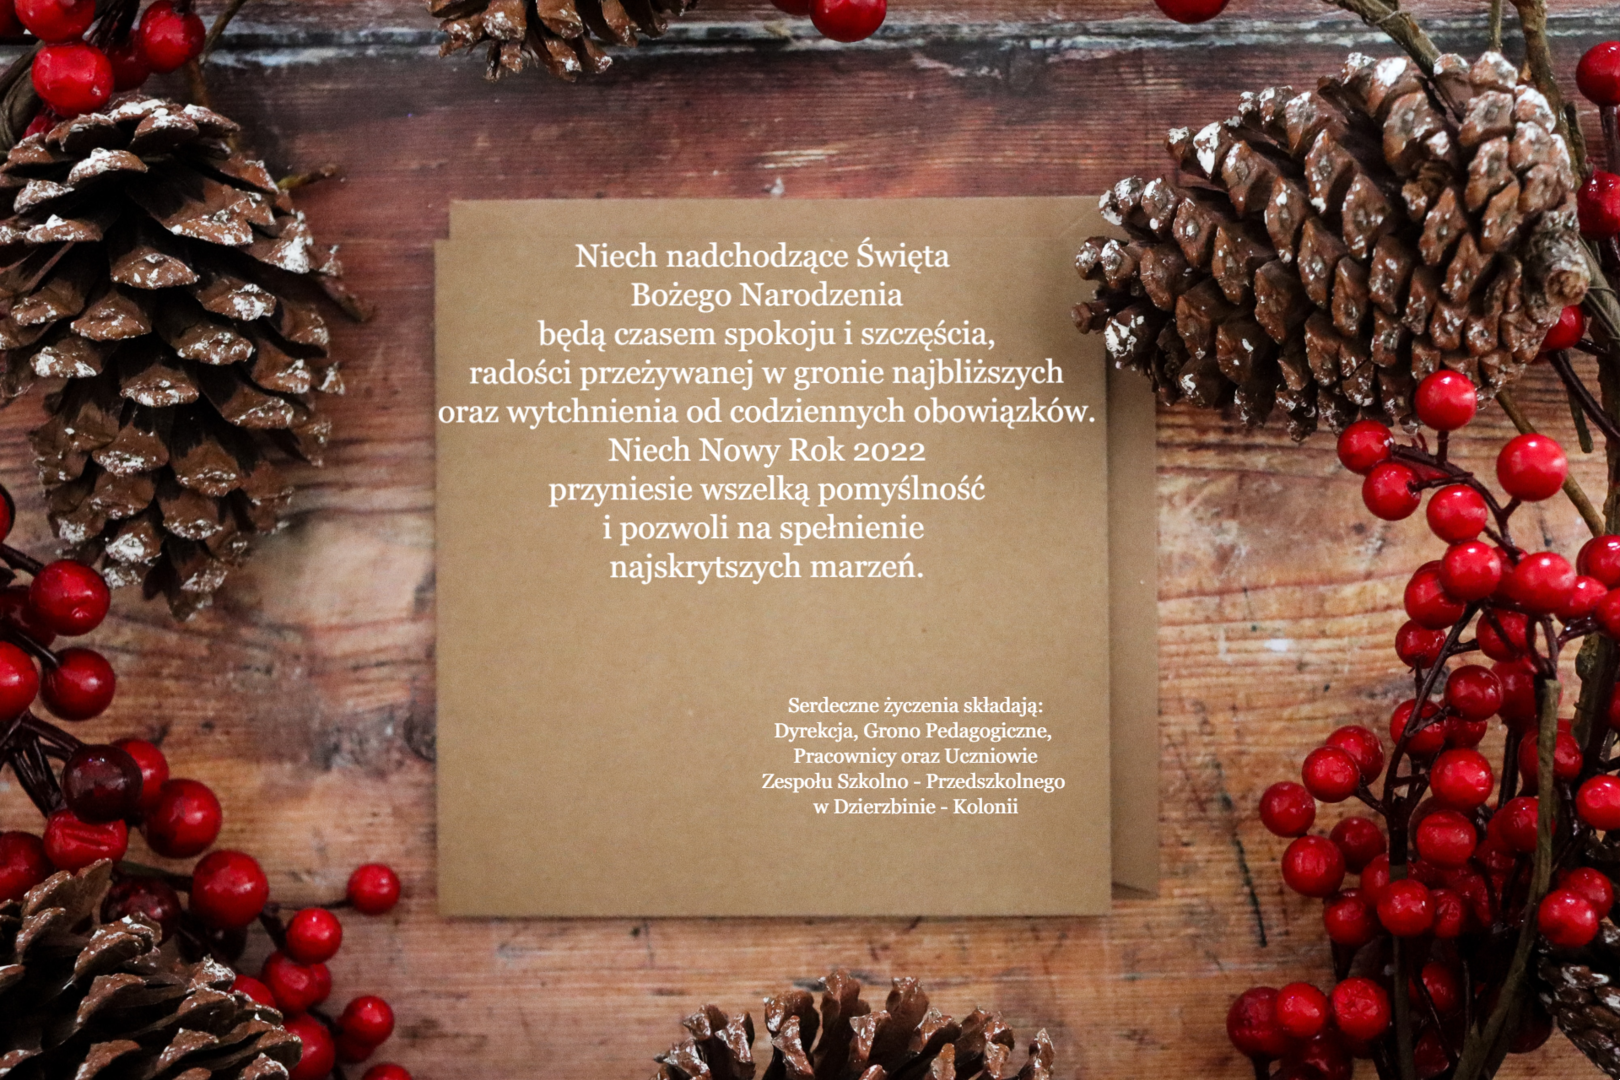 Niech nadchodzące Święta
Bożego Narodzenia
będą czasem spokoju i szczęścia,
radości przeżywanej w gronie najbliższych
oraz wytchnienia od codziennych obowiązków.
Niech Nowy Rok 2022
przyniesie wszelką pomyślność
i pozwoli na spełnienie
najskrytszych marzeń.
Serdeczne życzenia składają:
Dyrekcja, Grono Pedagogiczne,
Pracownicy oraz Uczniowie
Zespołu Szkolno - Przedszkolnego
w Dzierzbinie - Kolonii